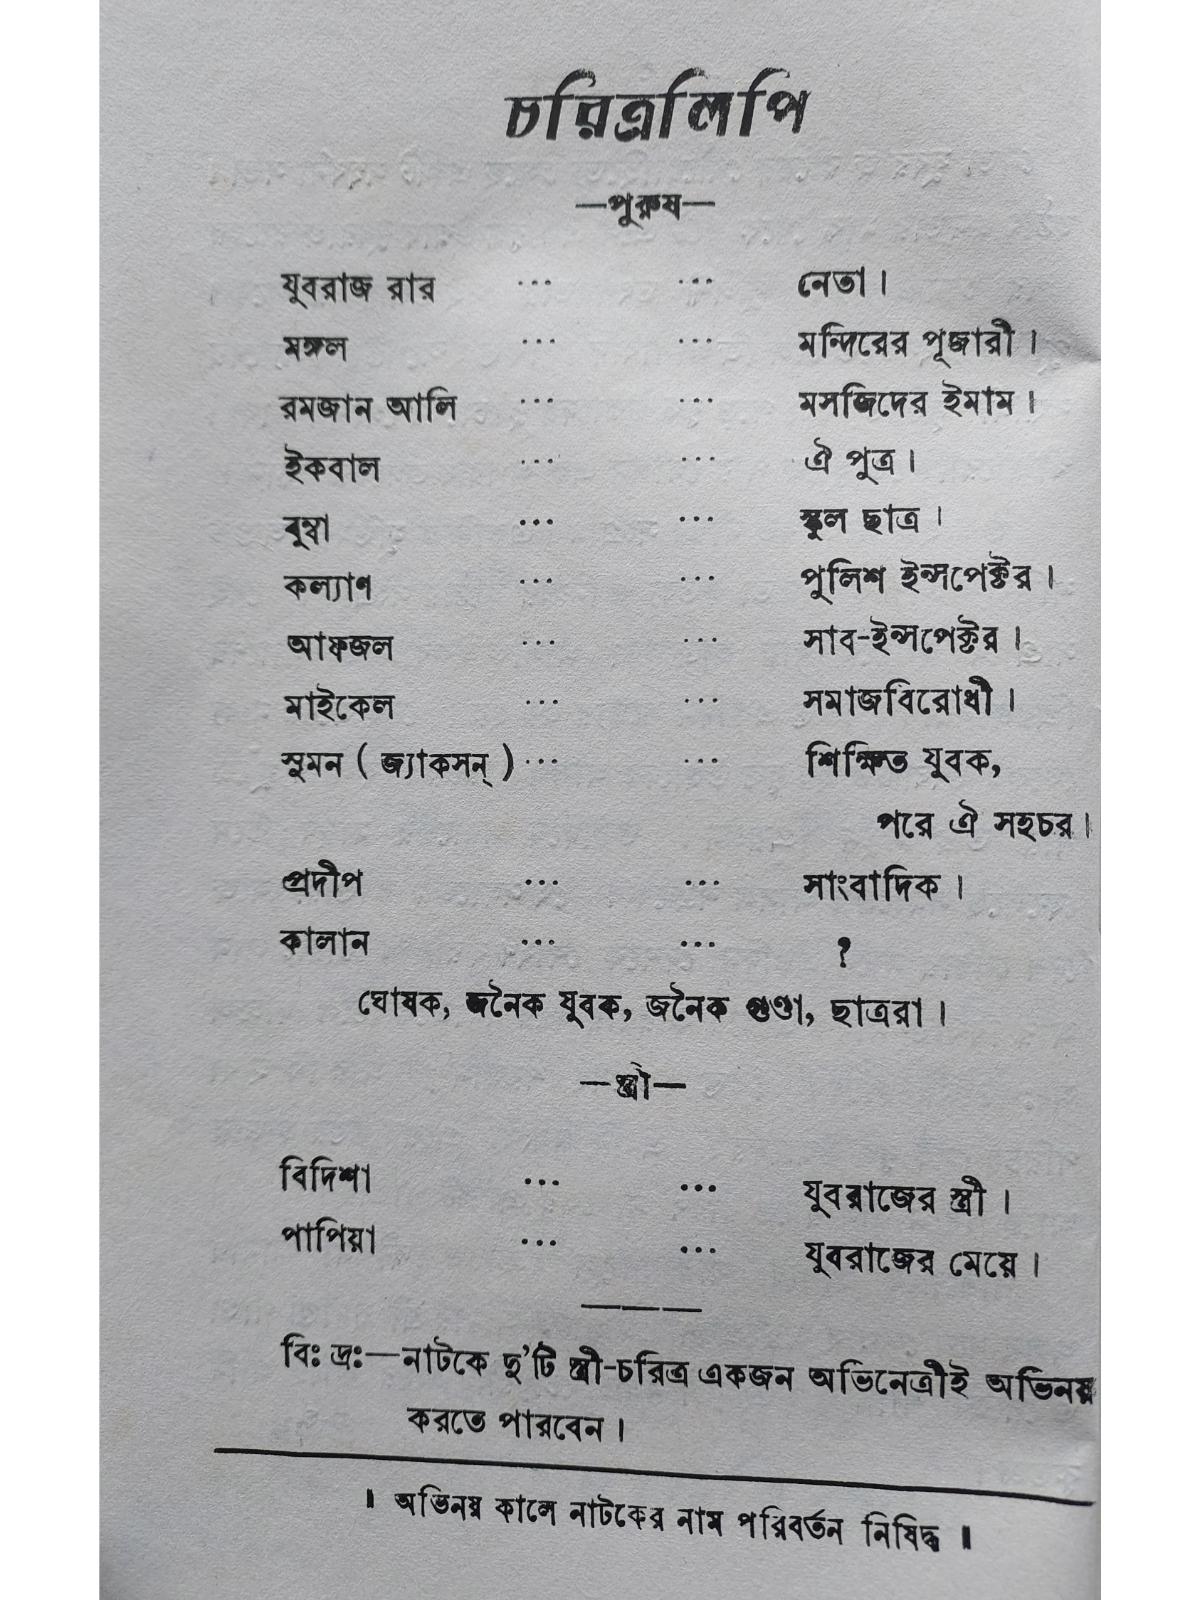 চরিত্রলিপি
—পুরুষ—
যুবরাজ রার ... ... নেতা।
মঙ্গল ... ... মন্দিরের পূজারী।
রমজান আলি ... ... মসজিদের ইমাম।
ইকবাল ... ... ঐ পুত্র।
বুম্বা ... ... স্কুল ছাত্র।
কল্যাণ ... ... পুলিশ ইন্সপেক্টর।
আফজল ... ... সাব-ইন্সপেক্টর।
মাইকেল ... ... সমাজবিরোধী।
সুমন ( জ্যাকসন্ ) ... ... শিক্ষিত যুবক,
পরে ঐ সহচর।
প্রদীপ ... ... সাংবাদিক।
কালান ... ... ?
ঘোষক, জনৈক যুবক, জনৈক গুণ্ডা, ছাত্ররা।
—স্ত্রী—
বিদিশা ... ... যুবরাজের স্ত্রী।
পাপিয়া ... ... যুবরাজের মেয়ে।
বিঃ দ্রঃ—নাটকে দু'টি স্ত্রী-চরিত্র একজন অভিনেত্রীই অভিনয়
করতে পারবেন।
॥ অভিনয় কালে নাটকের নাম পরিবর্তন নিষিদ্ধ ॥